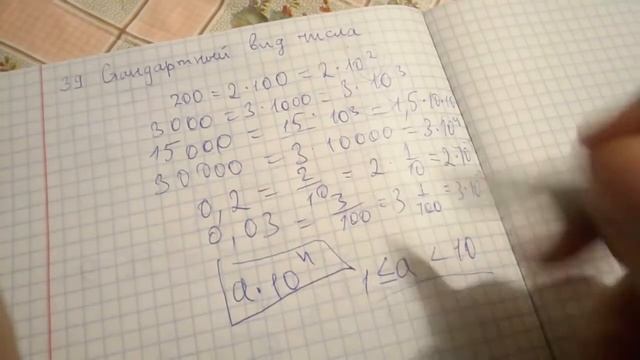 39 Стандартный вид числа
200 = 2·100 = 2·10²
3000 = 3·1000 = 3·10³
15000 = 15·10³ = 1,5·10·10
30000 = 3·10000 = 3·10⁴
0,2 = 2/10 = 2·1/10 = 2·10
0,03 = 3/100 = 3 1/100 = 3·10
a·10ⁿ 1 ≤ a < 10